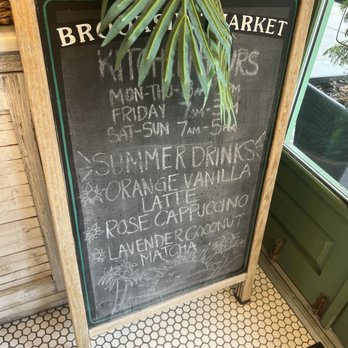 MARKET
KITCHEN HOURS
MON-THU
FRIDAY 7AM
SAT-SUN 7AM-5PM
SUMMER DRINKS
ORANGE VANILLA
LATTE
ROSE CAPPUCCINO
LAVENDER COCONUT
MATCHA